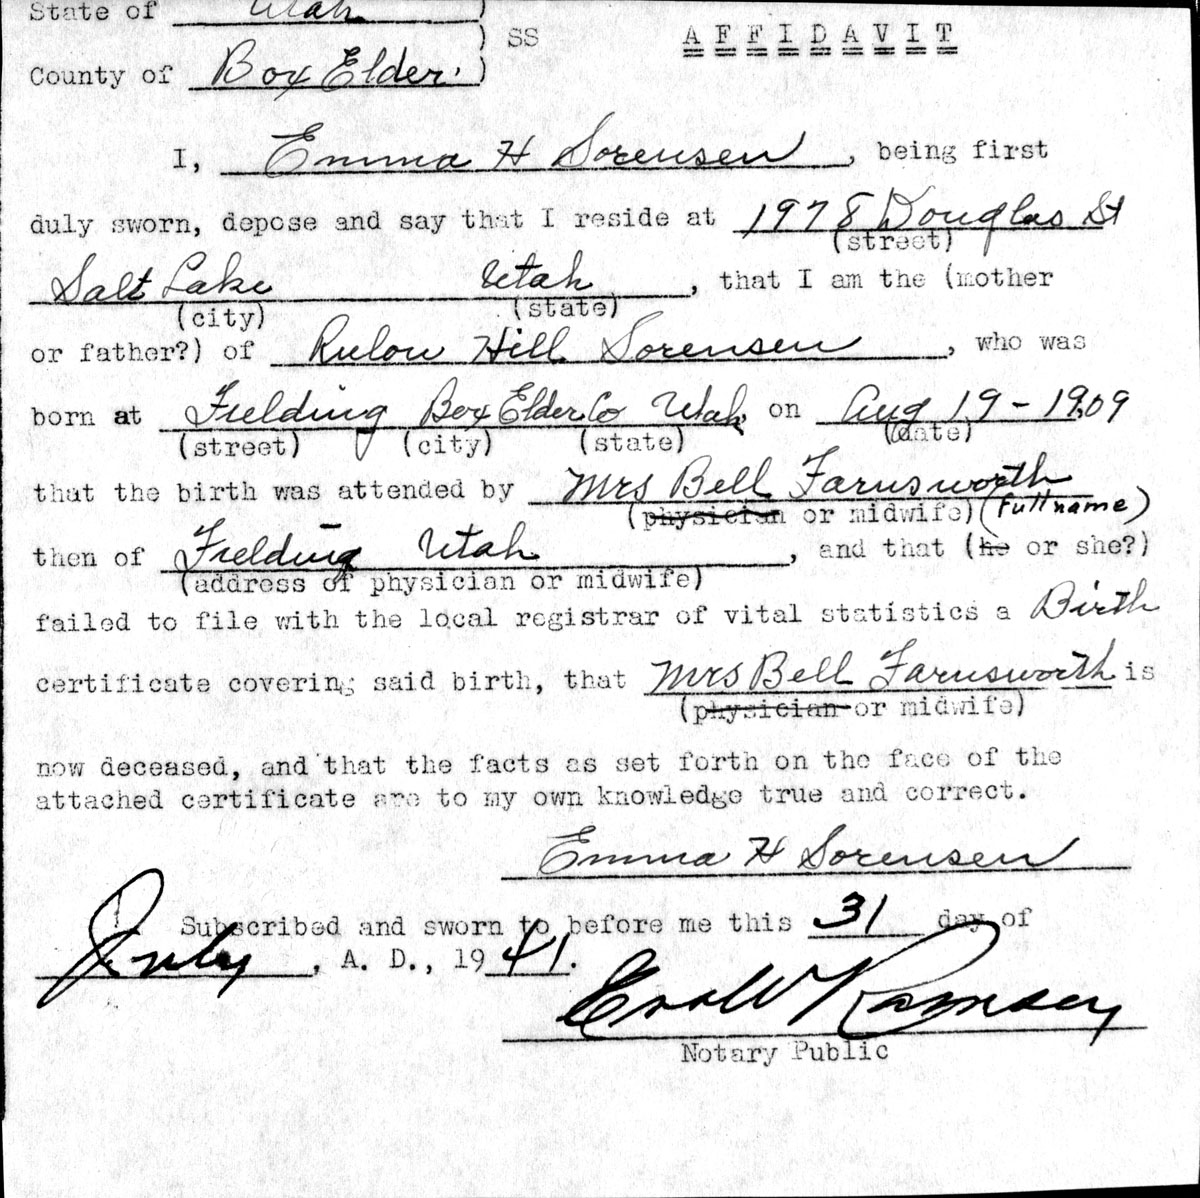 State of Utah )
) SS AFFIDAVIT
County of Box Elder. )
I, Emma H Sorensen, being first
duly sworn, depose and say that I reside at 1978 Douglas St
(street)
Salt Lake Utah, that I am the (mother
(city) (state)
or father?) of Rulow Hill Sorensen, who was
born at Fielding Box Elder Co Utah, on Aug 19-1909
(street) (city) (state) (date)
that the birth was attended by Mrs Bell Farnsworth
(physician or midwife) (full name)
then of Fielding Utah, and that (he or she?)
(address of physician or midwife)
failed to file with the local registrar of vital statistics a Birth
certificate covering said birth, that Mrs Bell Farnsworth is
(physician or midwife)
now deceased, and that the facts as set forth on the face of the
attached certificate are to my own knowledge true and correct.
Emma H Sorensen
Subscribed and sworn to before me this 31 day of
July, A. D., 1941.
Ramsey
Notary Public